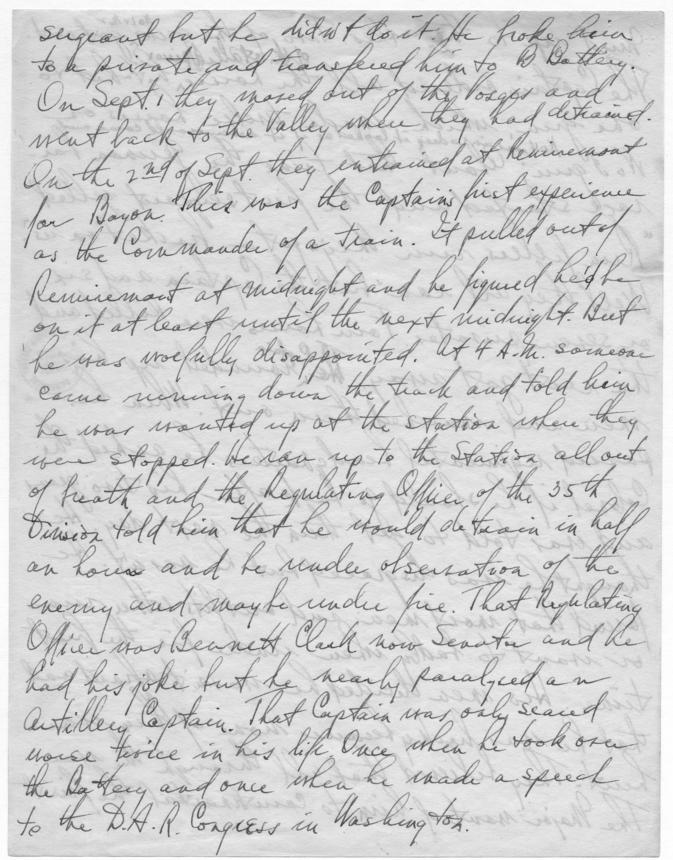 sergeant but he didn't do it. He broke him
to a private and transfered him to B Battery.
On Sept. 1 they moved out of the Vosges and
went back to the Valley where they had detrained.
On the 2nd of Sept. they entrained at Remiremont
for Bayon. This was the Captain's first experience
as the Commander of a train. It pulled out of
Remiremont at midnight and he figured he'd be
on it at least until the next midnight. But
he was woefully disappointed. At 4 A.M. someone
came running down the track and told him
he was wanted up at the station where they
were stopped. He ran up to the Station all out
of breath and the Regulating Officer of the 35th
Division told him that he would detrain in half
an hour and be under observation of the
enemy and maybe under fire. That Regulating
Officer was Bennett Clark now Senator and he
had his joke but he nearly paralyzed an
Artillery Captain. That Captain was only scared
worse twice in his life Once when he took over
the Battery and once when he made a speech
to the D.A.R. Congress in Washington.